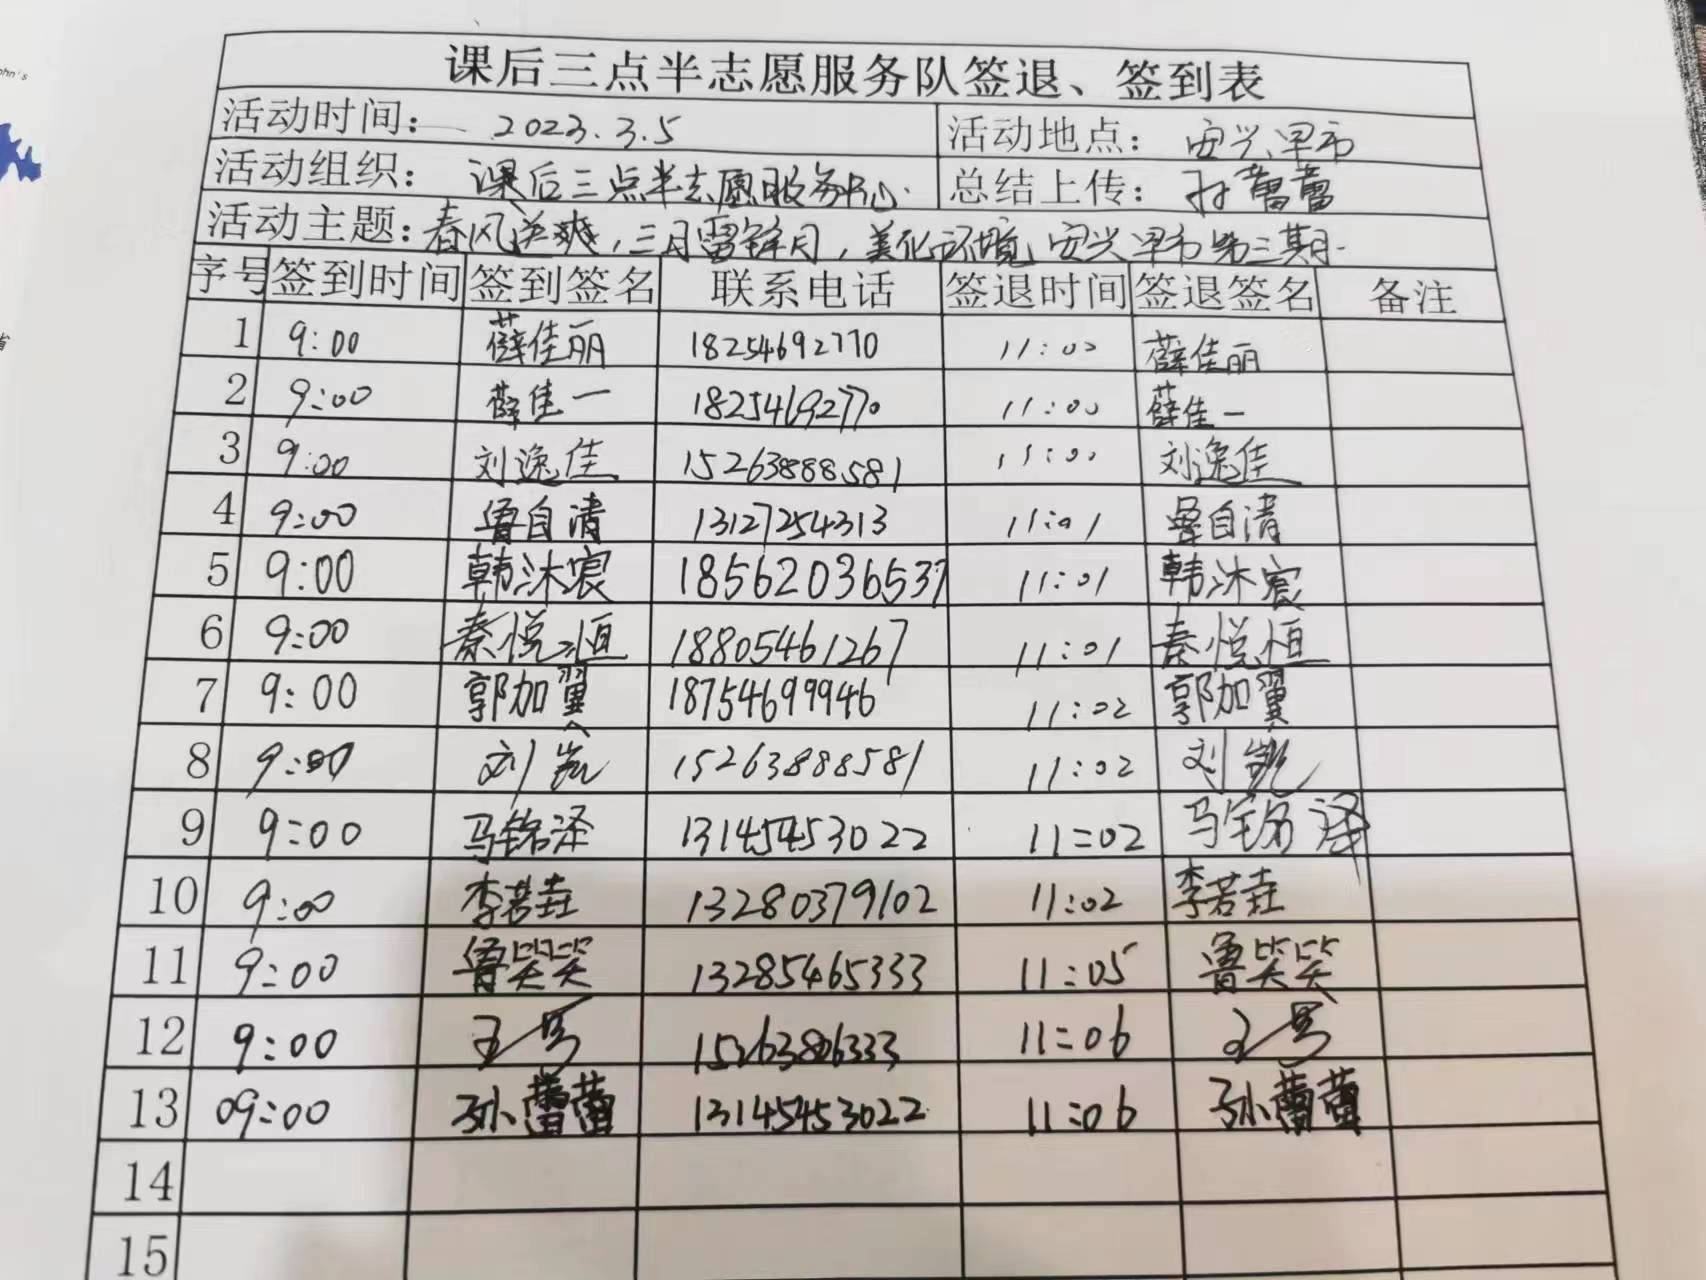 ohn's
课后三点半志愿服务队签退、签到表
活动时间: 2023.3.5 活动地点: 安兴早市
活动组织: 课后三点半志愿服务中心. 总结上传: 孙蕾蕾
活动主题: 春风送爽,三月雷锋月,美化环境 安兴早市第三期.
序号 签到时间 签到签名 联系电话 签退时间 签退签名 备注
1 9:00 薛佳丽 18254692770 11:00 薛佳丽
2 9:00 薛佳一 18254692770 11:00 薛佳一
3 9:00 刘逸佳 15263888581 11:00 刘逸佳
4 9:00 鲁自清 13127254313 11:01 鲁自清
5 9:00 韩沐宸 18562036537 11:01 韩沐宸
6 9:00 秦悦恒 18805461267 11:01 秦悦恒
7 9:00 郭加翼 18754699946 11:02 郭加翼
8 9:00 刘凯 15263888581 11:02 刘凯
9 9:00 马锦泽 13145453022 11:02 马锦泽
10 9:00 李若垚 13280379102 11:02 李若垚
11 9:00 鲁笑笑 13285465333 11:05 鲁笑笑
12 9:00 15263806333 11:06
13 09:00 孙蕾蕾 13145453022 11:06 孙蕾蕾
14
15